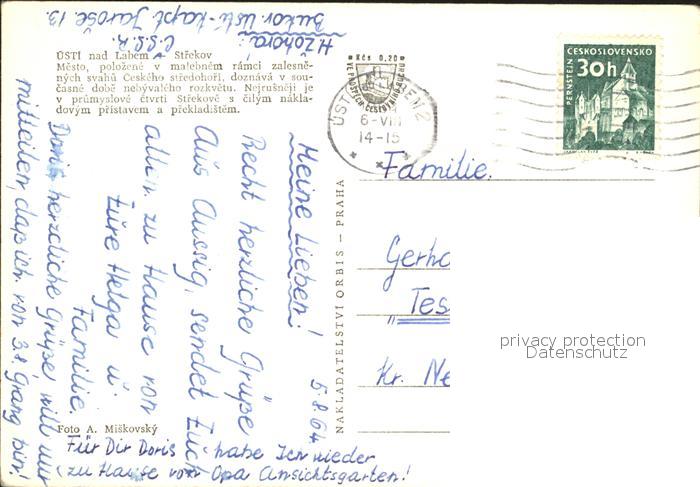 H. Žohorá:
Bukov. Ústí. Kapt. Jaroše. 13.
Č.S.S.R.
ÚSTÍ nad Labem – Střekov
Město, položené v malebném rámci zalesně-
ných svahů Českého středohoří, doznává v sou-
časné době nebývalého rozkvětu. Nejrušněji je
v průmyslové čtvrti Střekově s čilým nákla-
dovým přístavem a překladištěm.
5.8.64
Meine Lieben!
Recht herzliche Grüße
Aus Aussig, sendet Euch
allen zu Hause von
Eure Helga u.
Familie.
Doris herzliche Grüße will nur
mitteilen, daß ich von 38 grang bin!
Für Dir Doris habe Ich wieder
zu Hause von Opa Ansichtsgarten!
Foto A. Miškovský
NAKLADATELSTVÍ ORBIS – PRAHA
Kčs 0,20
ÚSTÍ
2
6-VIII
14-15
ČESKOSLOVENSKO
PERNŠTEJN
30h
Familie.
Gerho
"Tes
Kr. Ne
privacy protection
Datenschutz